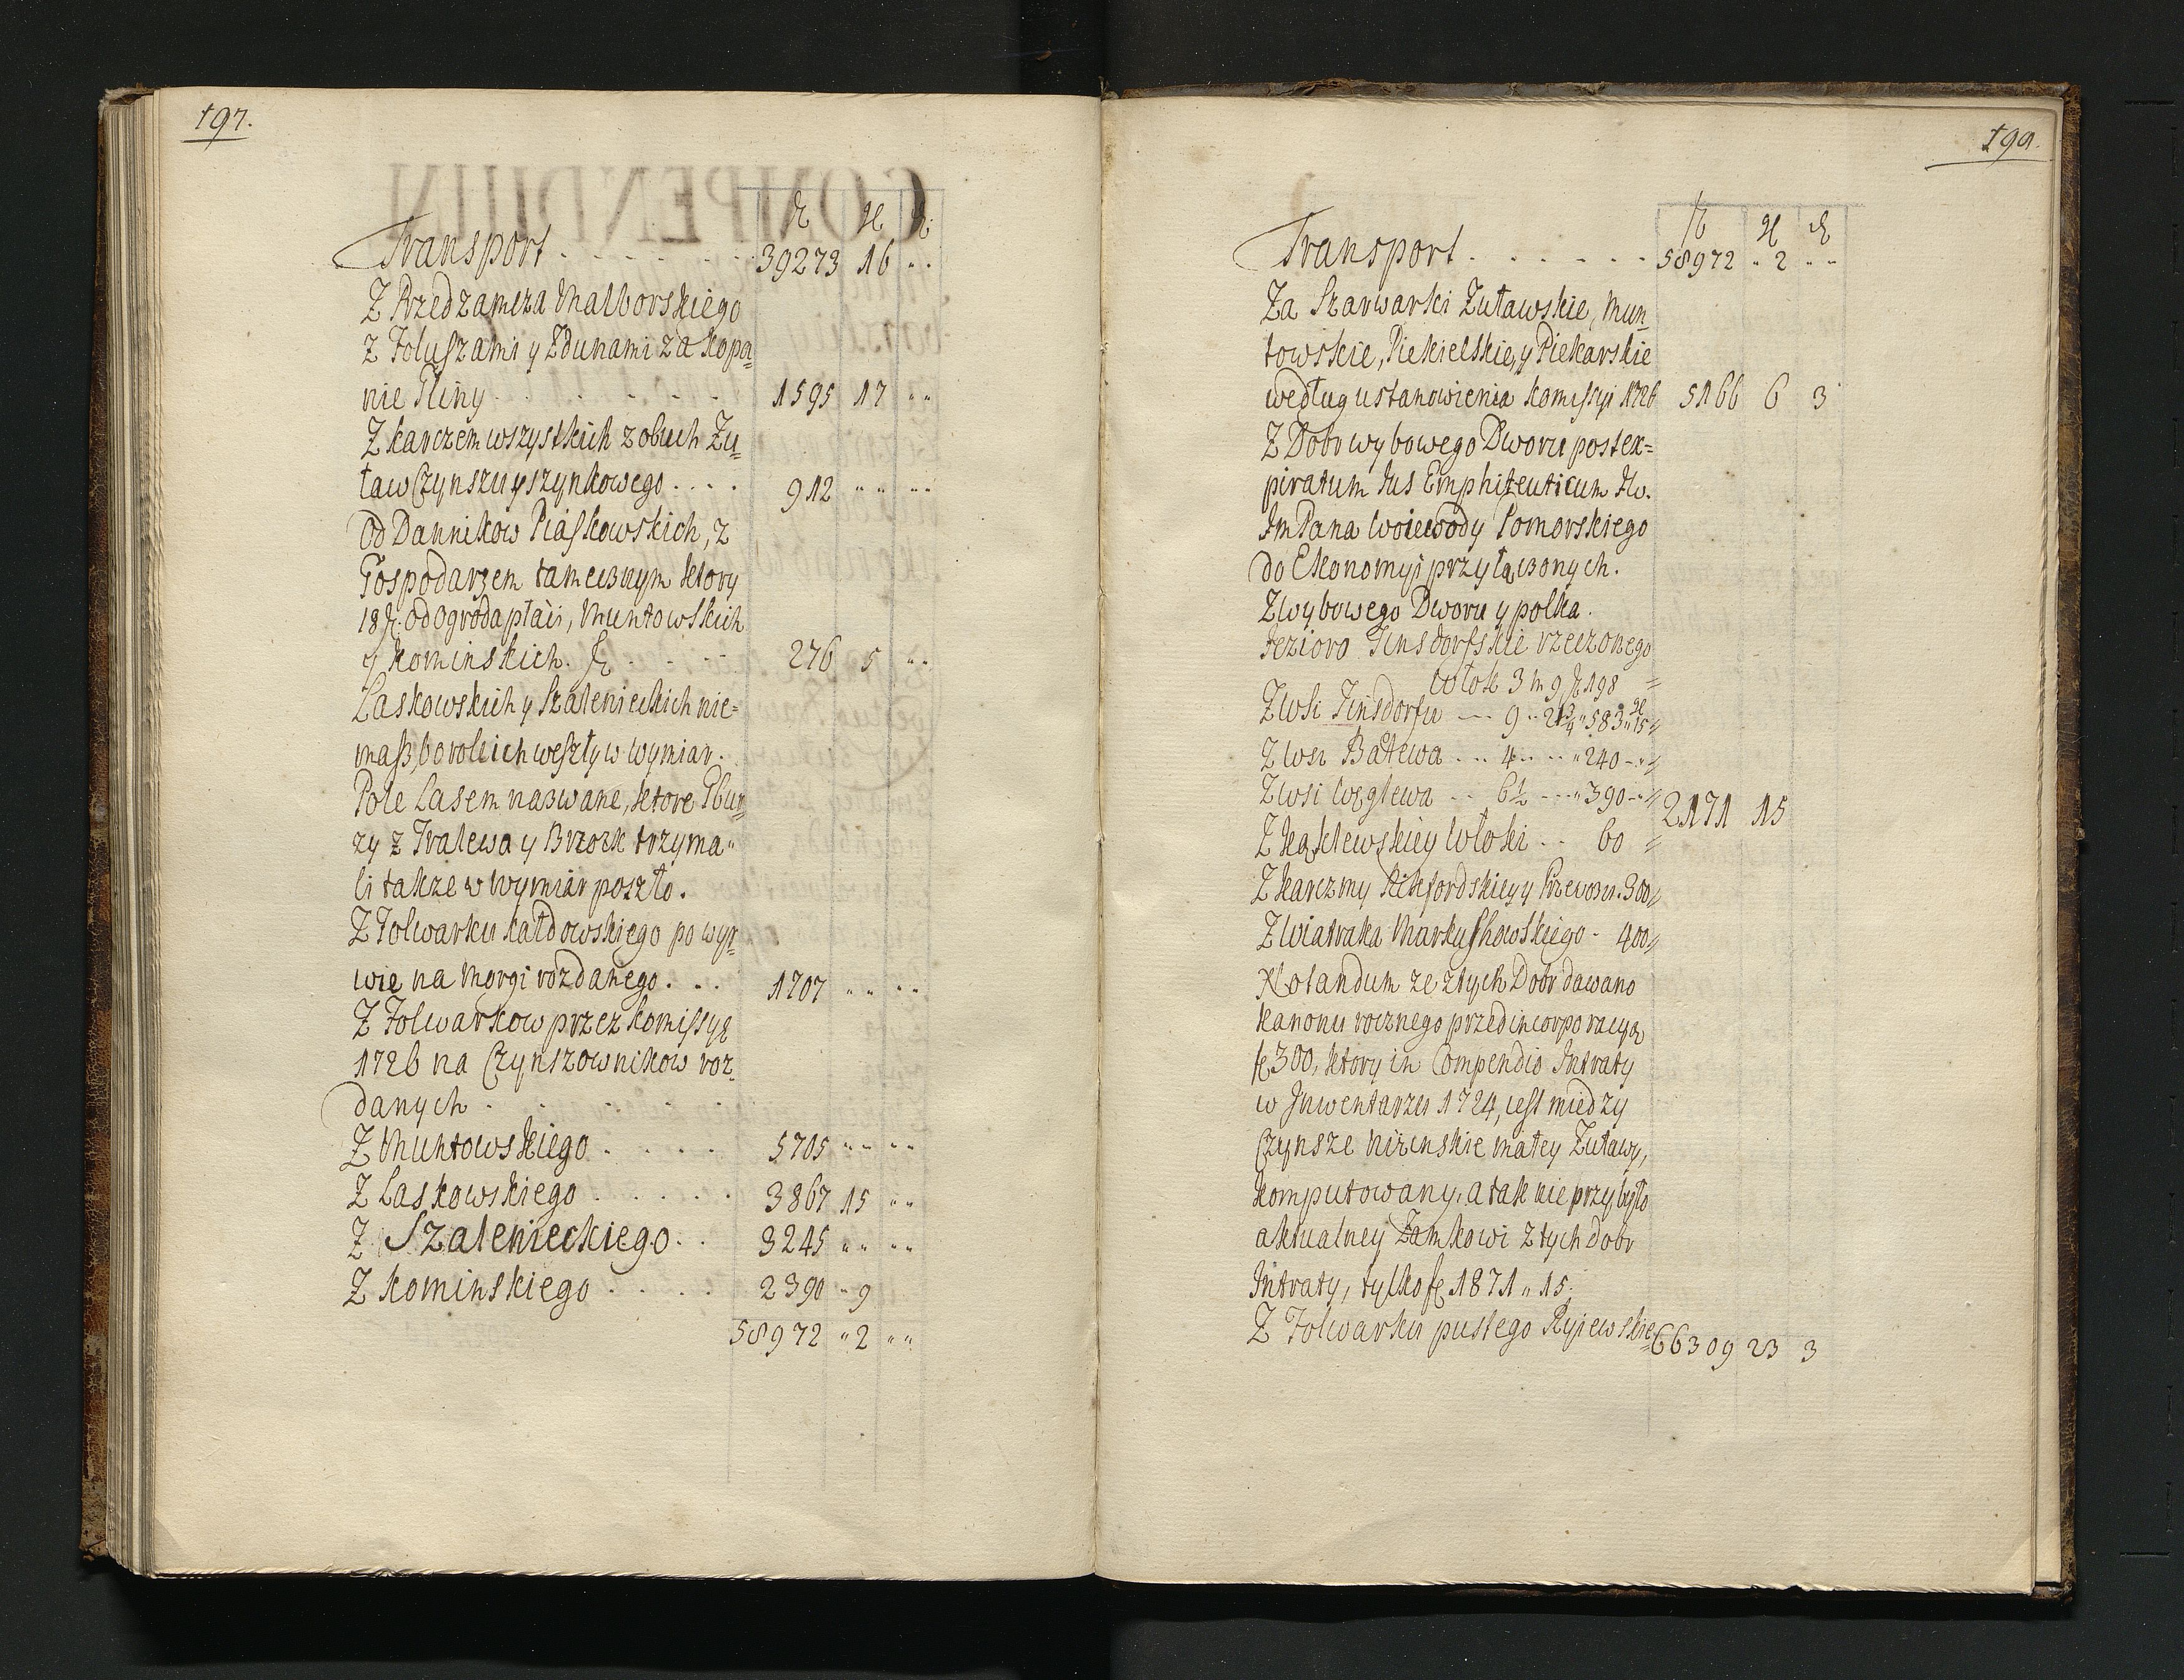 197.
Transport . . . . . . . 39273 16 " "
Z Przedzamcza Malborskiego
z Foluszami y Zdunami za kopa=
nie Gliny . . . . . . 1595 17 " "
Z karczem wszystkich z obuch Zu=
ław Czynszu y szynkowego . . . . 912 " " " "
Od Dannikow Piaskowskich, z
Gospodarzem tamecznym ktory
18 f. od Ogroda płaci, Muntowskich
y kominskich. . . . . 276 5 " "
Laskowskich y Szalenieckich nie=
masz, bo rolle ich weszły w wymiar.
Pole Lasem nazwane, ktore Gbur=
zy z Tralewa y Brzozk trzyma"
li takze w wymiar poszło.
Z Folwarku kałdowskiego po wyr=
wie na Morgi rozdanego. . . 1707 " " " "
Z Folwarkow przez komissyą
1726 na Czynszownikow roz=
danych . . . . .
Z Muntowskiego . . . . 5705 " " " "
Z Laskowskiego . . . . . 3867 15 " "
Z Szalenieckiego . . 3245 " " " "
Z kominskiego . . . . 2390 " 9
58972 " 2 " "
199.
Transport . . . . . . 58972 " 2 " "
Za Szarwarki Zuławskie, Mun=
towskie, Piekielskie, y Piekarskie
według ustanowienia komissyi 1726 5166 6 3
Z Dobr wybowego Dworu postex=
piratum Jus Emphiteuticum Jw.
Jm Pana Woiewody Pomorskiego
do Ekonomyi przyłączonych.
Z wybowego Dworu y polka.
Jezioro Tinsdorfskie rzeczonego
włok 3 m 9 f 198 =
Z Wsi Tinsdorfu --- 9 .. 21 3/4 " 583 " 15 "
Z Wsi Bałewa . . . 4 . . . . " 240 - " "
Z Wsi Węglewa . . 6½ --- " 390 - " " 2171 15
Z Kąklewskiey Włoki . . 60 =
Z karczmy kikfordskiey y Przewozu. 300 "
Z Wiatraka Markushowskiego - 400 "
Notandum ze z tych Dobr dawano
kanonu rocznego przed incorporacyą
f 300, ktory in Compendio Intraty
w Inwentarzu 1724, iest miedzy
Czynsze nizinskie małey Zuławy,
komputowany, a tak nie przybyło
aktualney Zamkowi z tych dobr
Intraty, tylko f 1871 " 15.
Z Folwarku pustego Ryiewskie= 66309 23 3